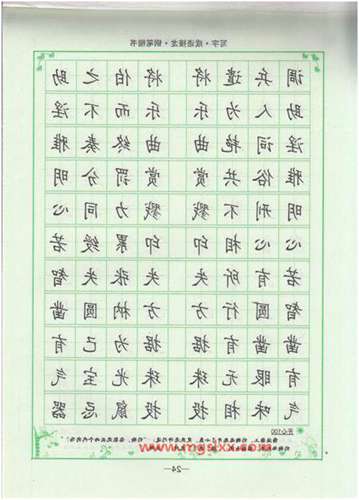 写字·成语接龙·钢笔楷书
调兵遣将将伯之助
助人为乐乐而不淫
淫词艳曲曲终奏雅
雅俗共赏赏罚分明
明刑不戮戮力同心
心心相印印累绶若
若有所失失张失智
智圆行方方枘圆凿
凿凿有据据为己有
有眼无珠珠光宝气
气味相投投鼠忌器
开心100
www.mgsixx.com
—24—